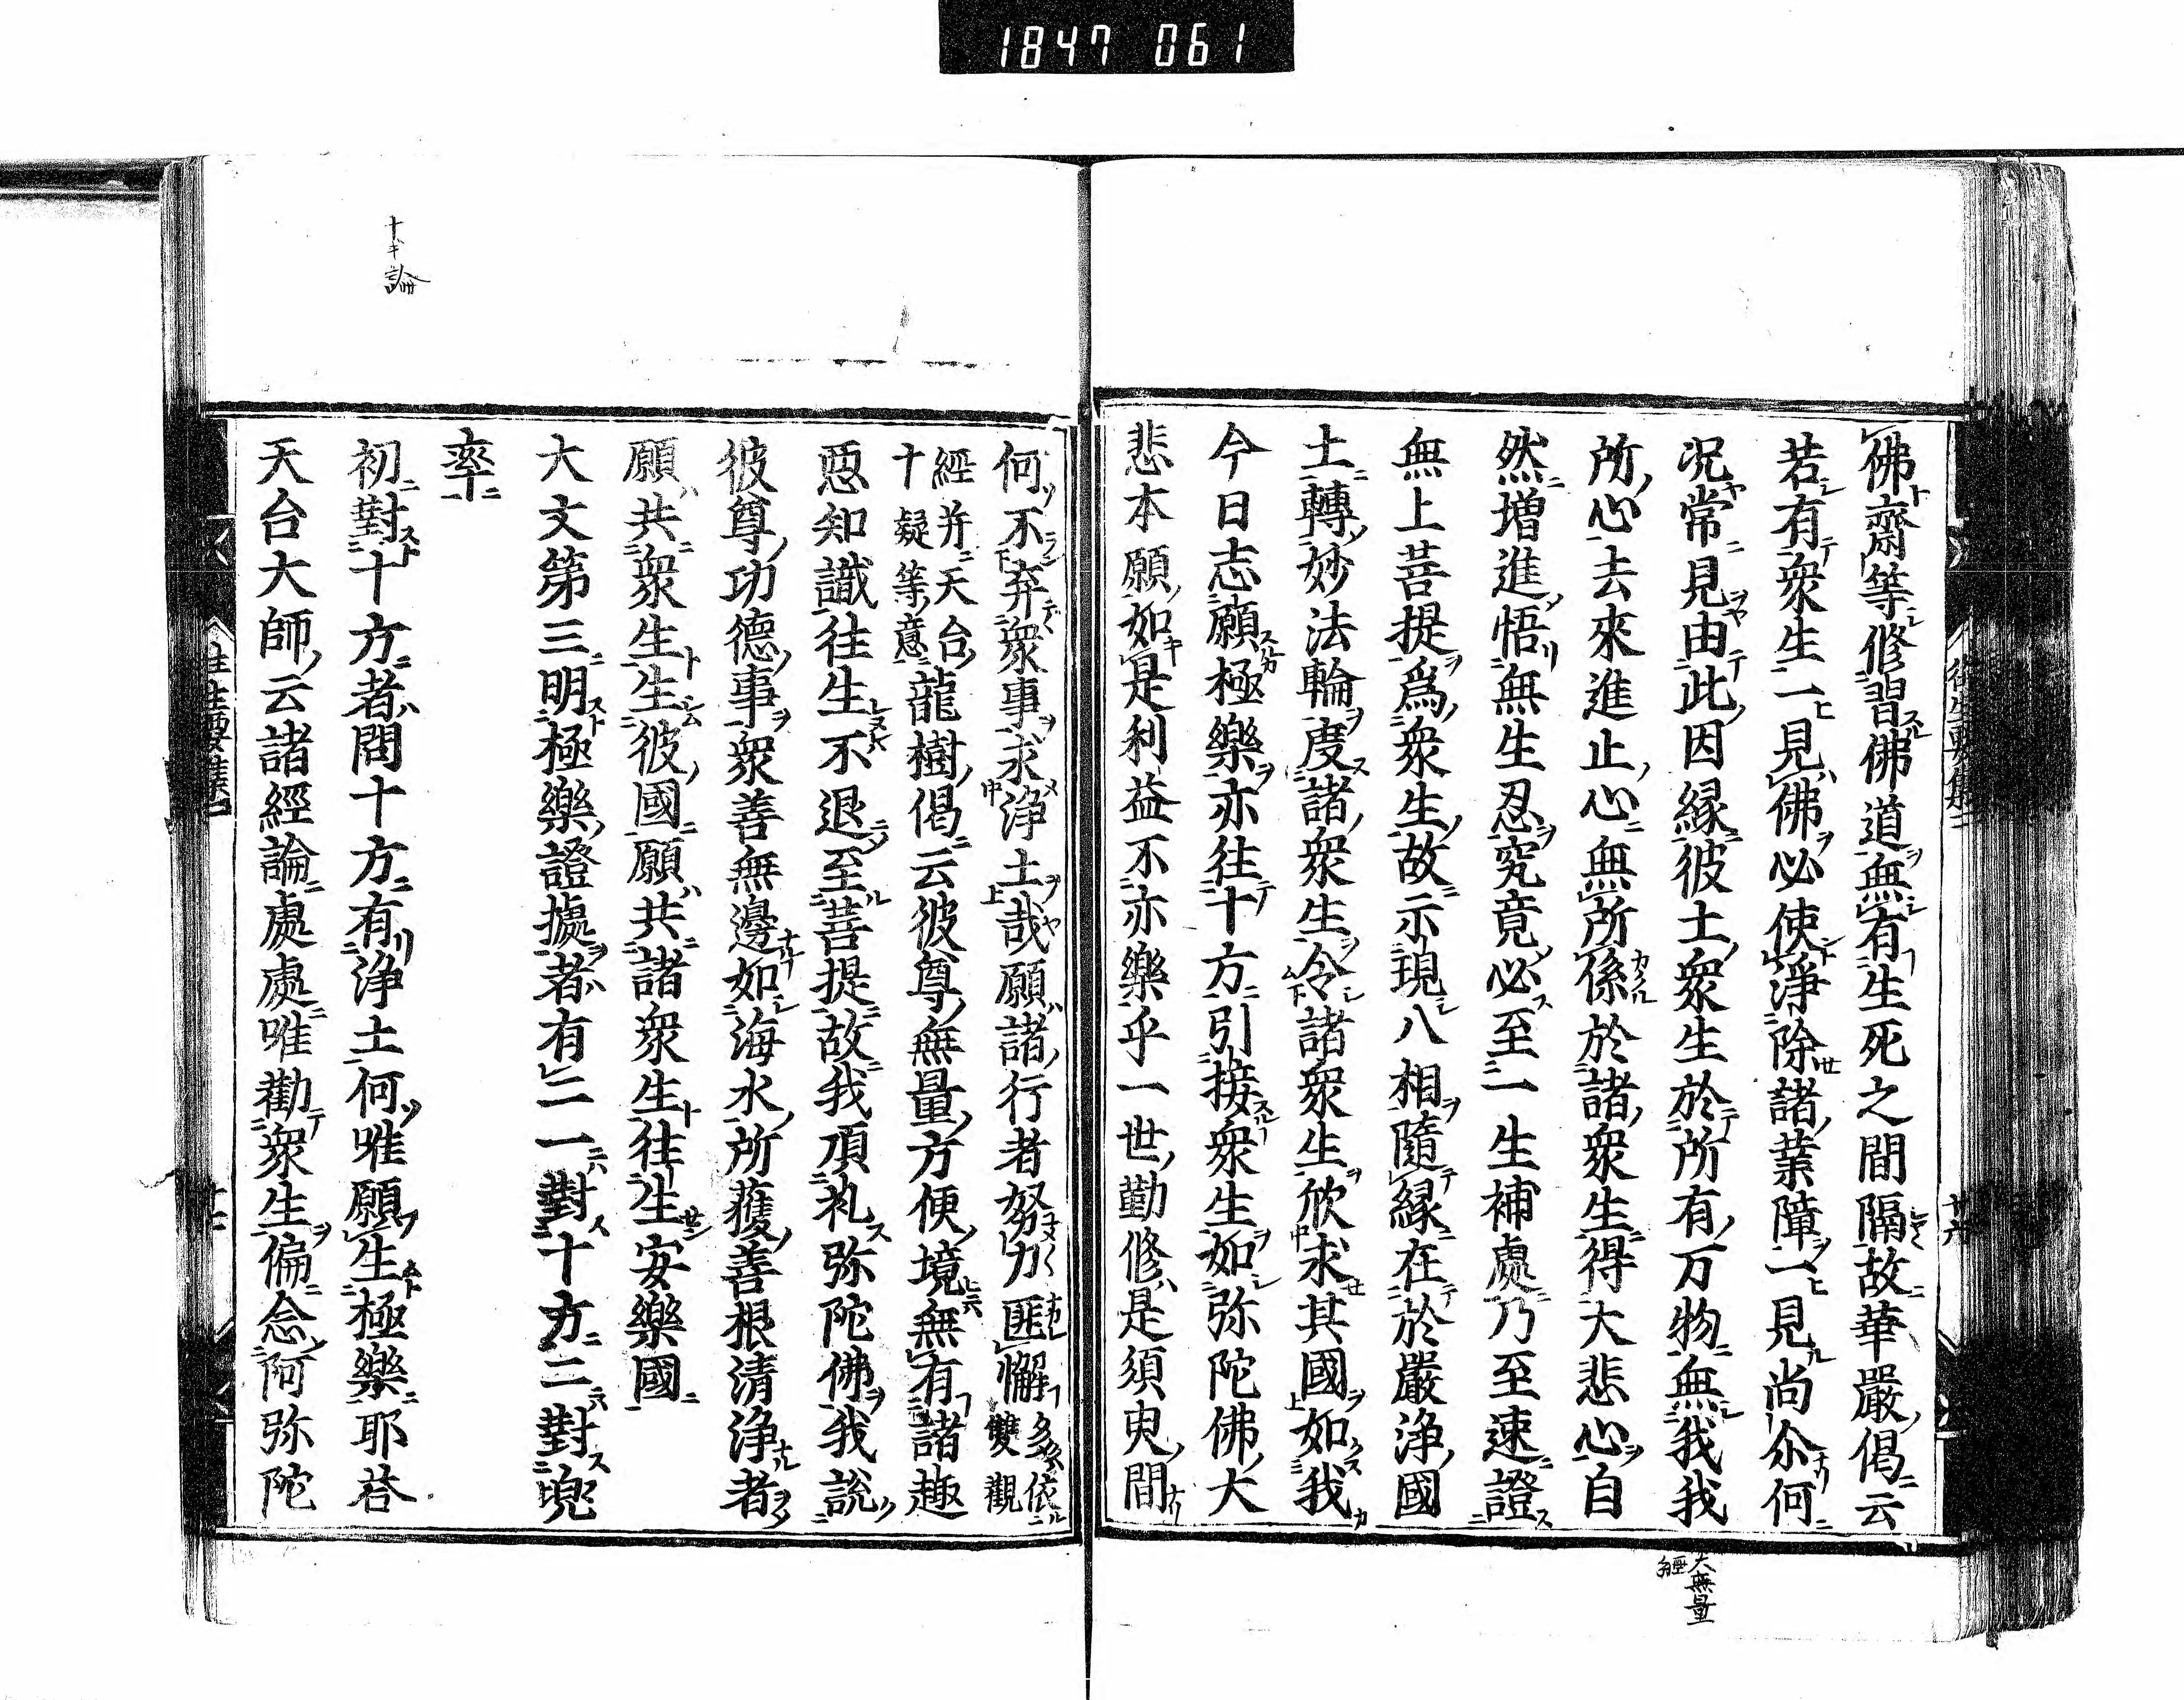 1847 061
佛齋等修習佛道無有生死之間隔故華嚴偈云
若有衆生一見佛必使淨除諸業障一見尚尒何
况常見由此因縁彼土衆生於所有万物無我我
所心去來進止心無所係於諸衆生得大悲心自
然増進悟無生忍究竟必至一生補處乃至速證
無上菩提爲衆生故示現八相隨縁在於嚴浄國
土轉妙法輪度諸衆生令諸衆生欣求其國如我
今日志願極樂亦往十方引接衆生如弥陀佛大
悲本願如是利益不亦樂乎一世勤修是須臾間
何不弃衆事求浄土哉願諸行者努力匪懈多依雙觀
經并天台十疑等意龍樹偈云彼尊無量方便境無有諸趣
惡知識往生不退至菩提故我頂礼弥陀佛我説
彼尊功德事衆善無邊如海水所獲善根清浄者
願共衆生生彼國願共諸衆生往生安樂國
大文第三明極樂證據者有二一對十方二對兜
率
初對十方者問十方有浄土何唯願生極樂耶荅
天台大師云諸經論處處唯勸衆生偏念阿弥陀
十キ論
大無量
經
往生要集